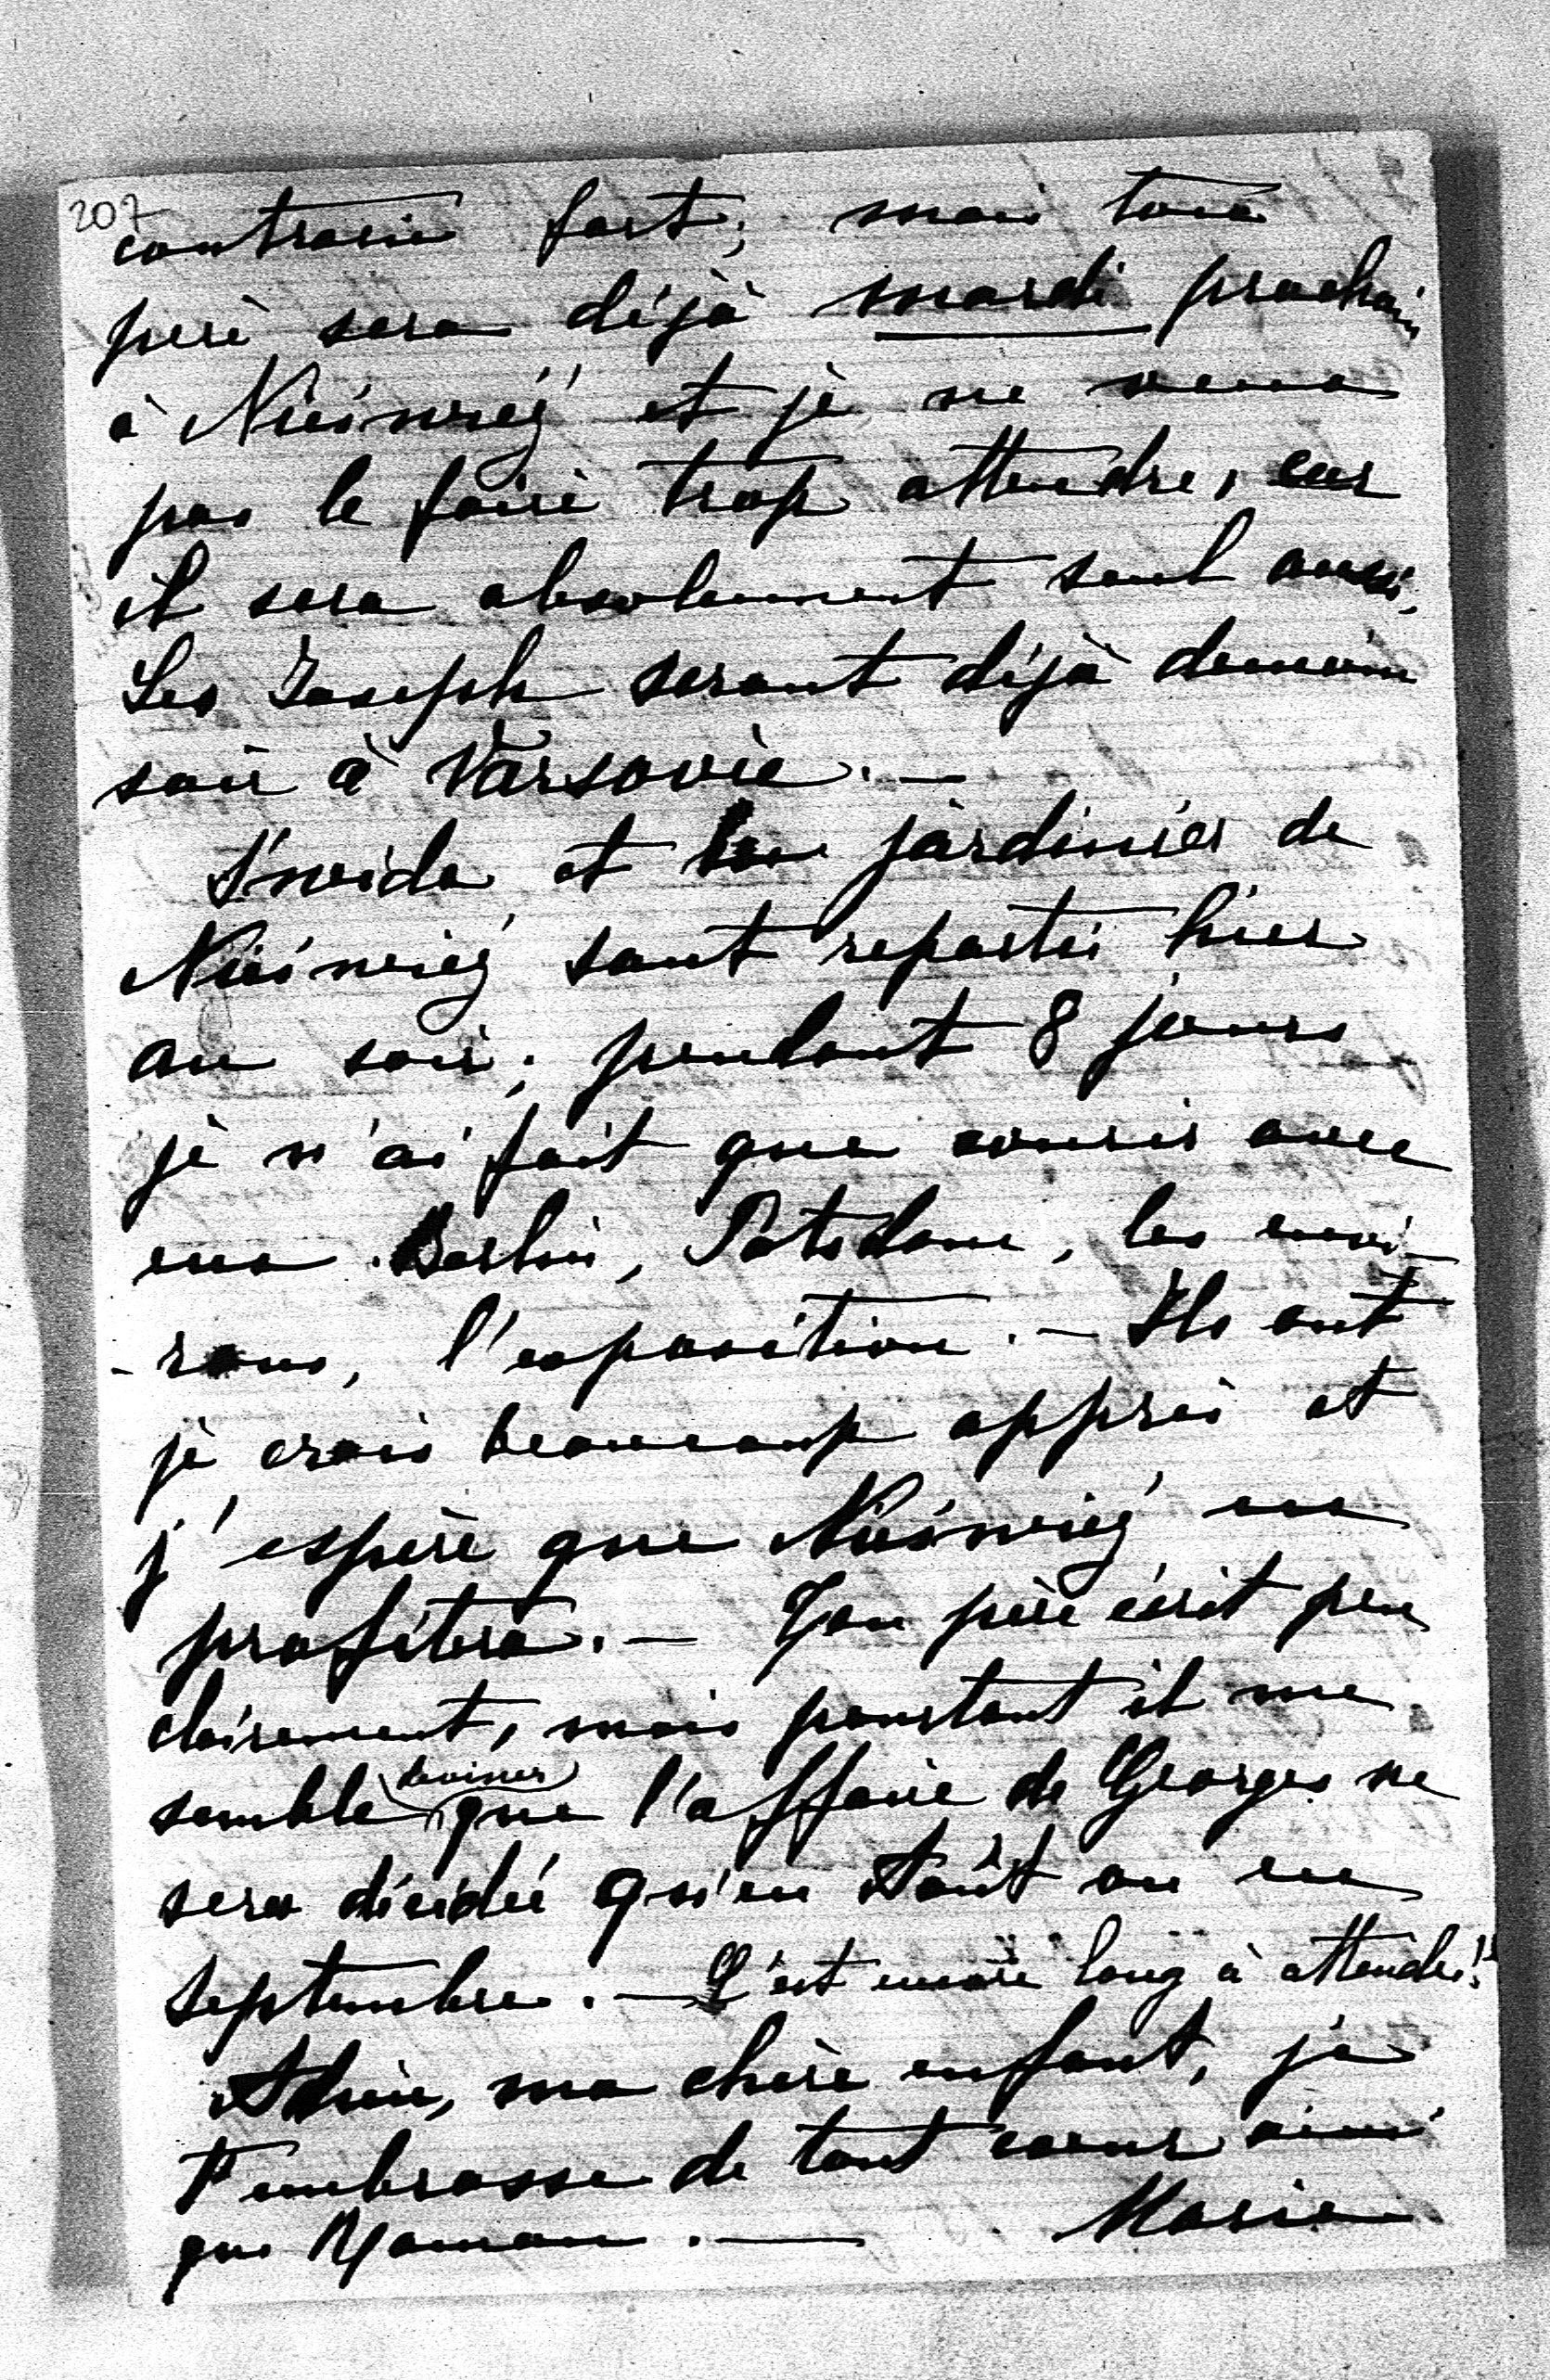 207
contrarie fort; mais ton
père sera déjà mardi prochain
à Nieśwież et je ne veux
pas le faire trop attendre, car
il sera absolument seul aussi.
Les Joseph seront déjà demain
soir à Varsovie. —
et jardinier de
Nieśwież sont repartis hier
au soir; pendant 8 jours
je n'ai fait que courir avec
eux Berlin, Potsdam, les envi-
-rons, l'exposition. — Ils ont
je crois beaucoup appris et
j'espère que Nieśwież en
profitera. — Ton père écrit peu
clairement, mais pourtant il me
semble deviner que l'affaire de Georges ne
sera décidée qu'en Août ou en
septembre. — C'est encore long à attendre!!
Adieu, ma chère enfant, je
t'embrasse de tout cœur ainsi
que Maman. — Marie